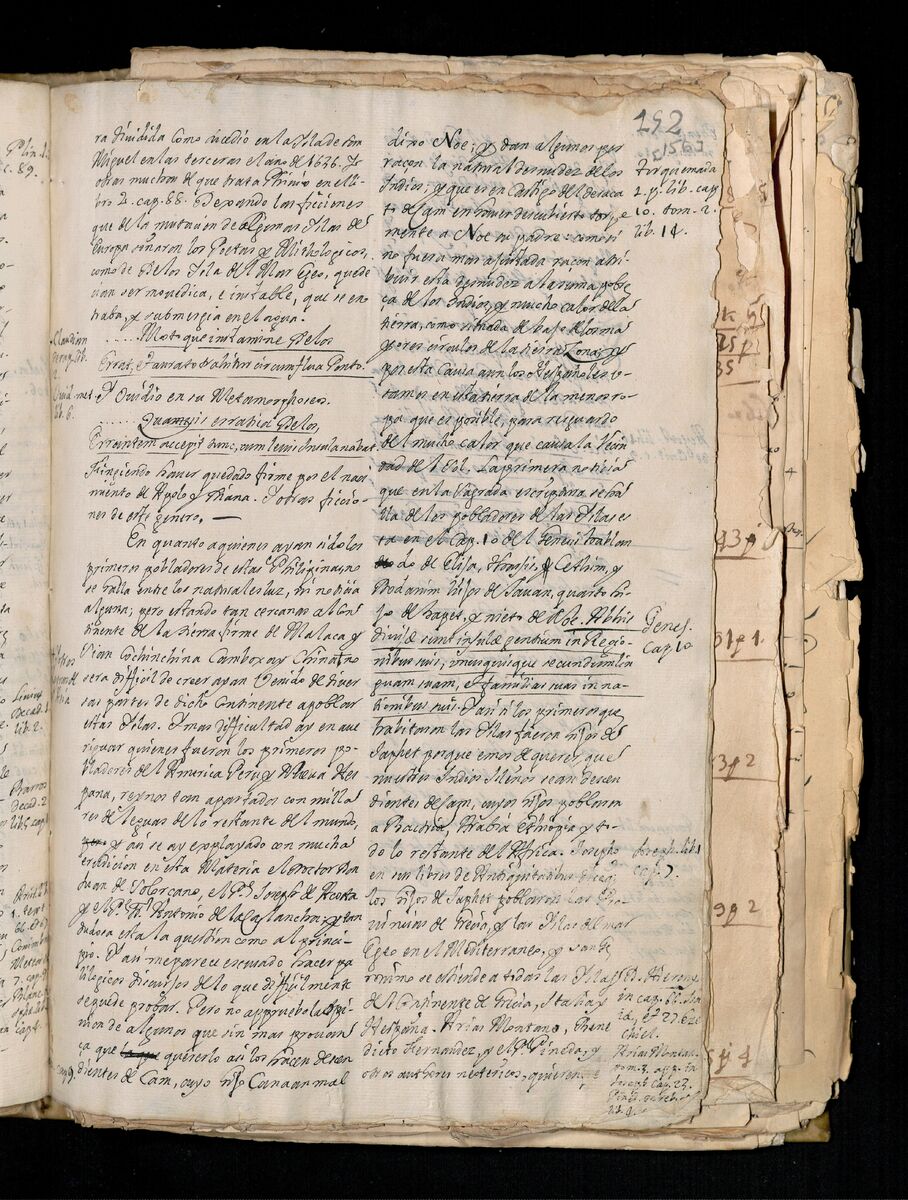 192
ra dividida como sucedio en la Isla de San
Miguel en las terceras el año de 1626. Y
otras muchas de que trata Plinio en el li-
bro 2. cap. 88. Dexando las ficciones
que de la mutacion de algunas Islas de
Europa soñaron los Poetas y Mithologicos,
como de Delos Isla del Mar Egeo, que de
cian ser movediça, e instable, que se en
traba, y submergia en el agua.
...... Mox que instamine Delos
Errat, et aurato
Y Ovidio en su Metamorphoseos.
...... Quamvis erratica Delos,
Errantem accepit tunc, cum levis insula nabat
Fingiendo haver quedado firme por el naci
miento de Apolo y Diana. Y otras ficcio-
nes de este genero. —
En quanto a quienes ayan sido los
primeros pobladores de estas Philipinas no
se halla entre los naturales luz, ni noticia
alguna; pero estando tan cercanas al Con
tinente de la tierra firme de Malaca y
Sian Cochinchina Camboxa y China no
sera difficil de creer ayan venido de diver
sas partes de dicho Continente a poblar
estas Islas. Y mas difficultad ay en ave
riguar quienes fueron los primeros po-
bladores del America Peru y Nueva Hes
pana, reynos tan apartados con milla
res de leguas de lo restante del mundo,
y asi se ay explayado con mucha
erudicion en esta Materia el Doctor Don
Juan de Solorçano, el P. Joseph de Acosta
y el P. Fr. Antonio de la Calancha; y tan
dudosa esta la question como al princi-
pio. Y asi me pareze escusado hacer pa
lilogicos discursos de lo que difficilmente
se puede probar. Pero no appruebo la opi
nion de algunos que sin mas provan
ça que quererlo asi los hacen descen
dientes de Cam, cuyo hijo Canaan mal
dixo Noe; y dan algunos por
raçon la natural desnudez de los
Indios; y que es en castigo del desaca
to de Cam en haver descubierto torpe
mente a Noe su padre: como si
no fuera mas ajustada raçon atri
buir esta desnudez a la suma pobre
ça de los Indios, y mucho calor de la
tierra, como situada debajo de los ma
yores circulos de la tierra Zonas; y
por esta causa aun los Españoles u-
samos en esta tierra de la menos ro-
pa que es posible, para resguardo
del mucho calor que causa la
del Sol. La primera noticia
que en la Sagrada escriptura se ha
lla de los pobladores de las Islas es
ta en el Cap. 10 del Genesis hablan
do de Elisa, Tharsis, Cethim, y
Dodanim hijos de Javan, quarto hi-
jo de Japet, y nieto de Noe. Ab his
divisæ sunt insulæ gentium in Regio
nibus suis, unusquisque secundum lin
guam suam, et familias suas in na-
tionibus suis. Y asi si los primeros que
habitaron las Islas fueron hijos de
Japhet porque emos de querer que
nuestros Indios Isleños sean descen
dientes de Cam, cuyos hijos poblaron
a Bactria, Arabia Ethiopia y to-
do lo restante del Africa. Josepho
en sus libros de Antiquitatibus
los hijos de Japhet poblaron las Pro
vincias de Grecia, y las Islas del mar
Egeo en el Mediterraneo; y San Ge
ronimo se estiende a todas las Islas
del Continente de Grecia, Italia y
Hespaña. Arias Montano, Bene
dicto Fernandez, y el P. Pineda, y
otros authores neotericos, quieren
Torquemada
2. p. lib. cap
10. tom. 2.
lib. 14.
Genes.
Cap. 10
Joseph. lib. 1
cap. 7.
D. Hieron.
in cap. 66.
et 27. Eze
chiel.
Arias Montan.
Plin. 2.
c. 89.
Claudian
Ovid. met
lib. 6.
Decad. 1
lib. 2.
Barros
decad. 2
43p
31p1
3p2
9p2